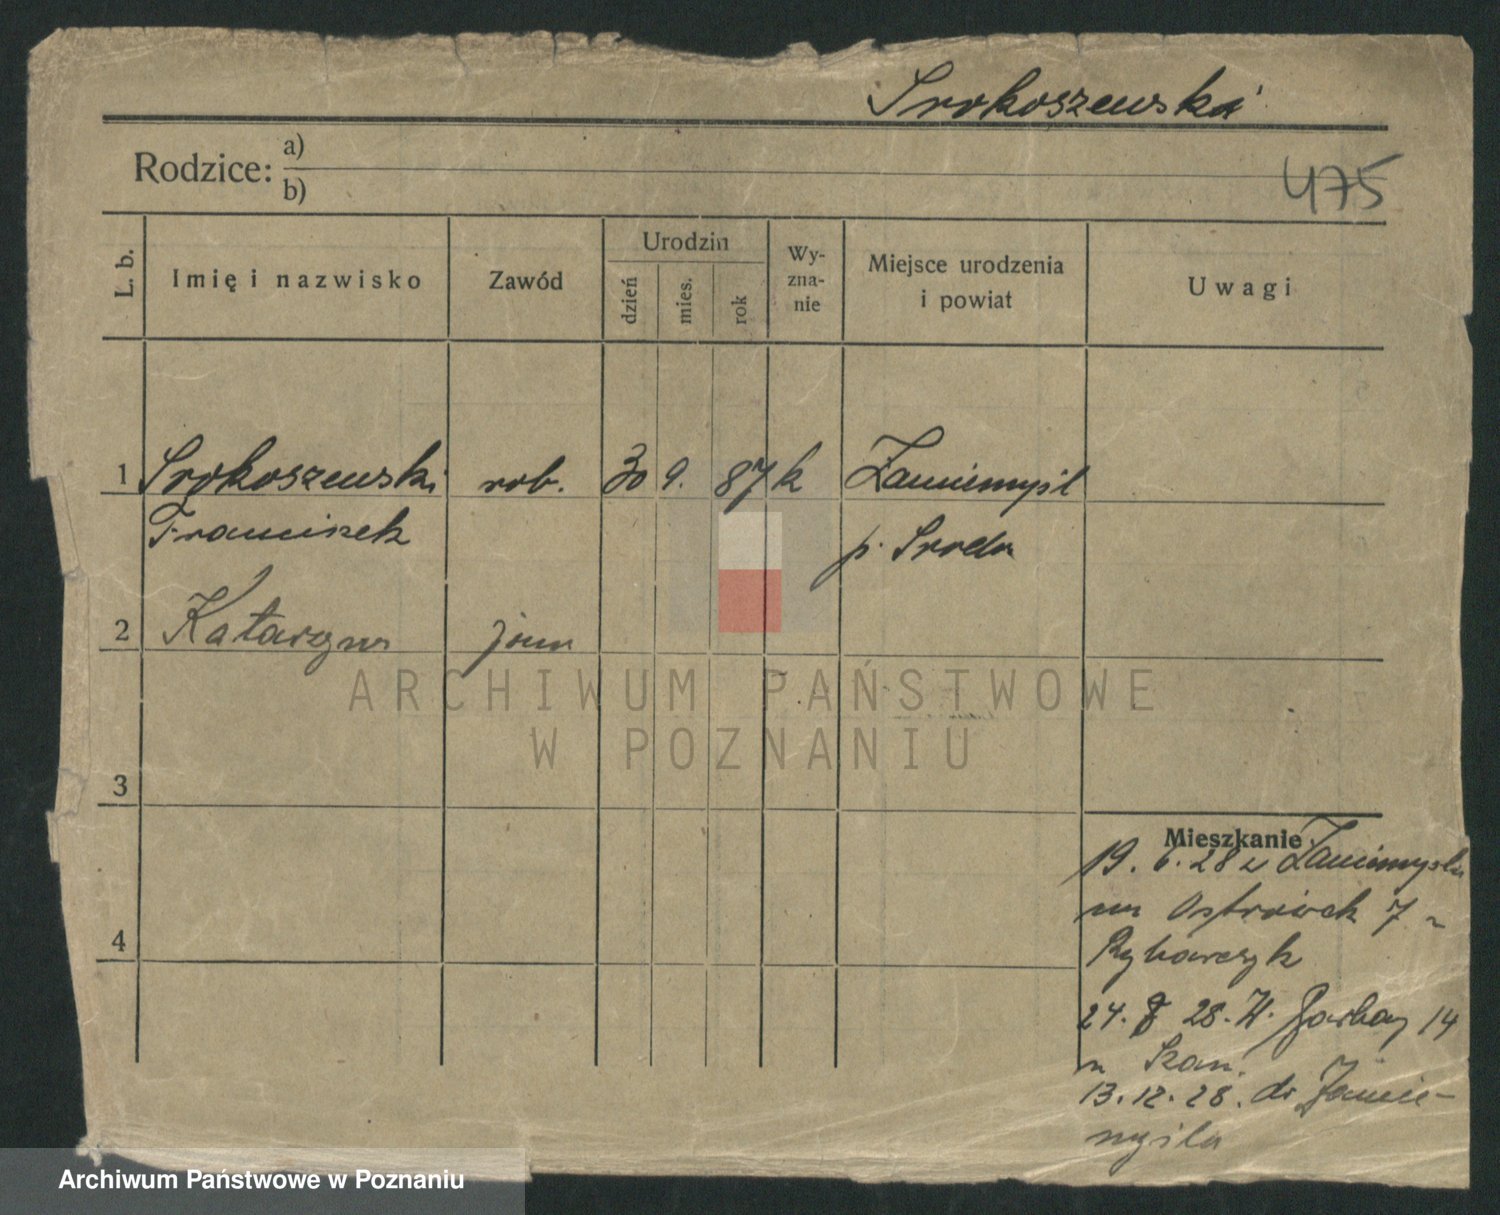 Srokoszewski
Rodzice: a)
b)
475
L. b.
Imię i nazwisko
Zawód
Urodzin
dzień
mies.
rok
Wy-
zna-
nie
Miejsce urodzenia
i powiat
Uwagi
1 Srokoszewski rob. 30 9. 87 k Zaniemyśl
Franciszek p. Środa
2 Katarzyna żona
ARCHIWUM PAŃSTWOWE
W POZNANIU
3
Mieszkanie
19. 6. 28 z Zaniemyśla
na Ostrówek 7
4
Rybarczyk
24. 8 28. W. Garbary 14
13. 12. 28. do Zanie-
myśla
Archiwum Państwowe w Poznaniu